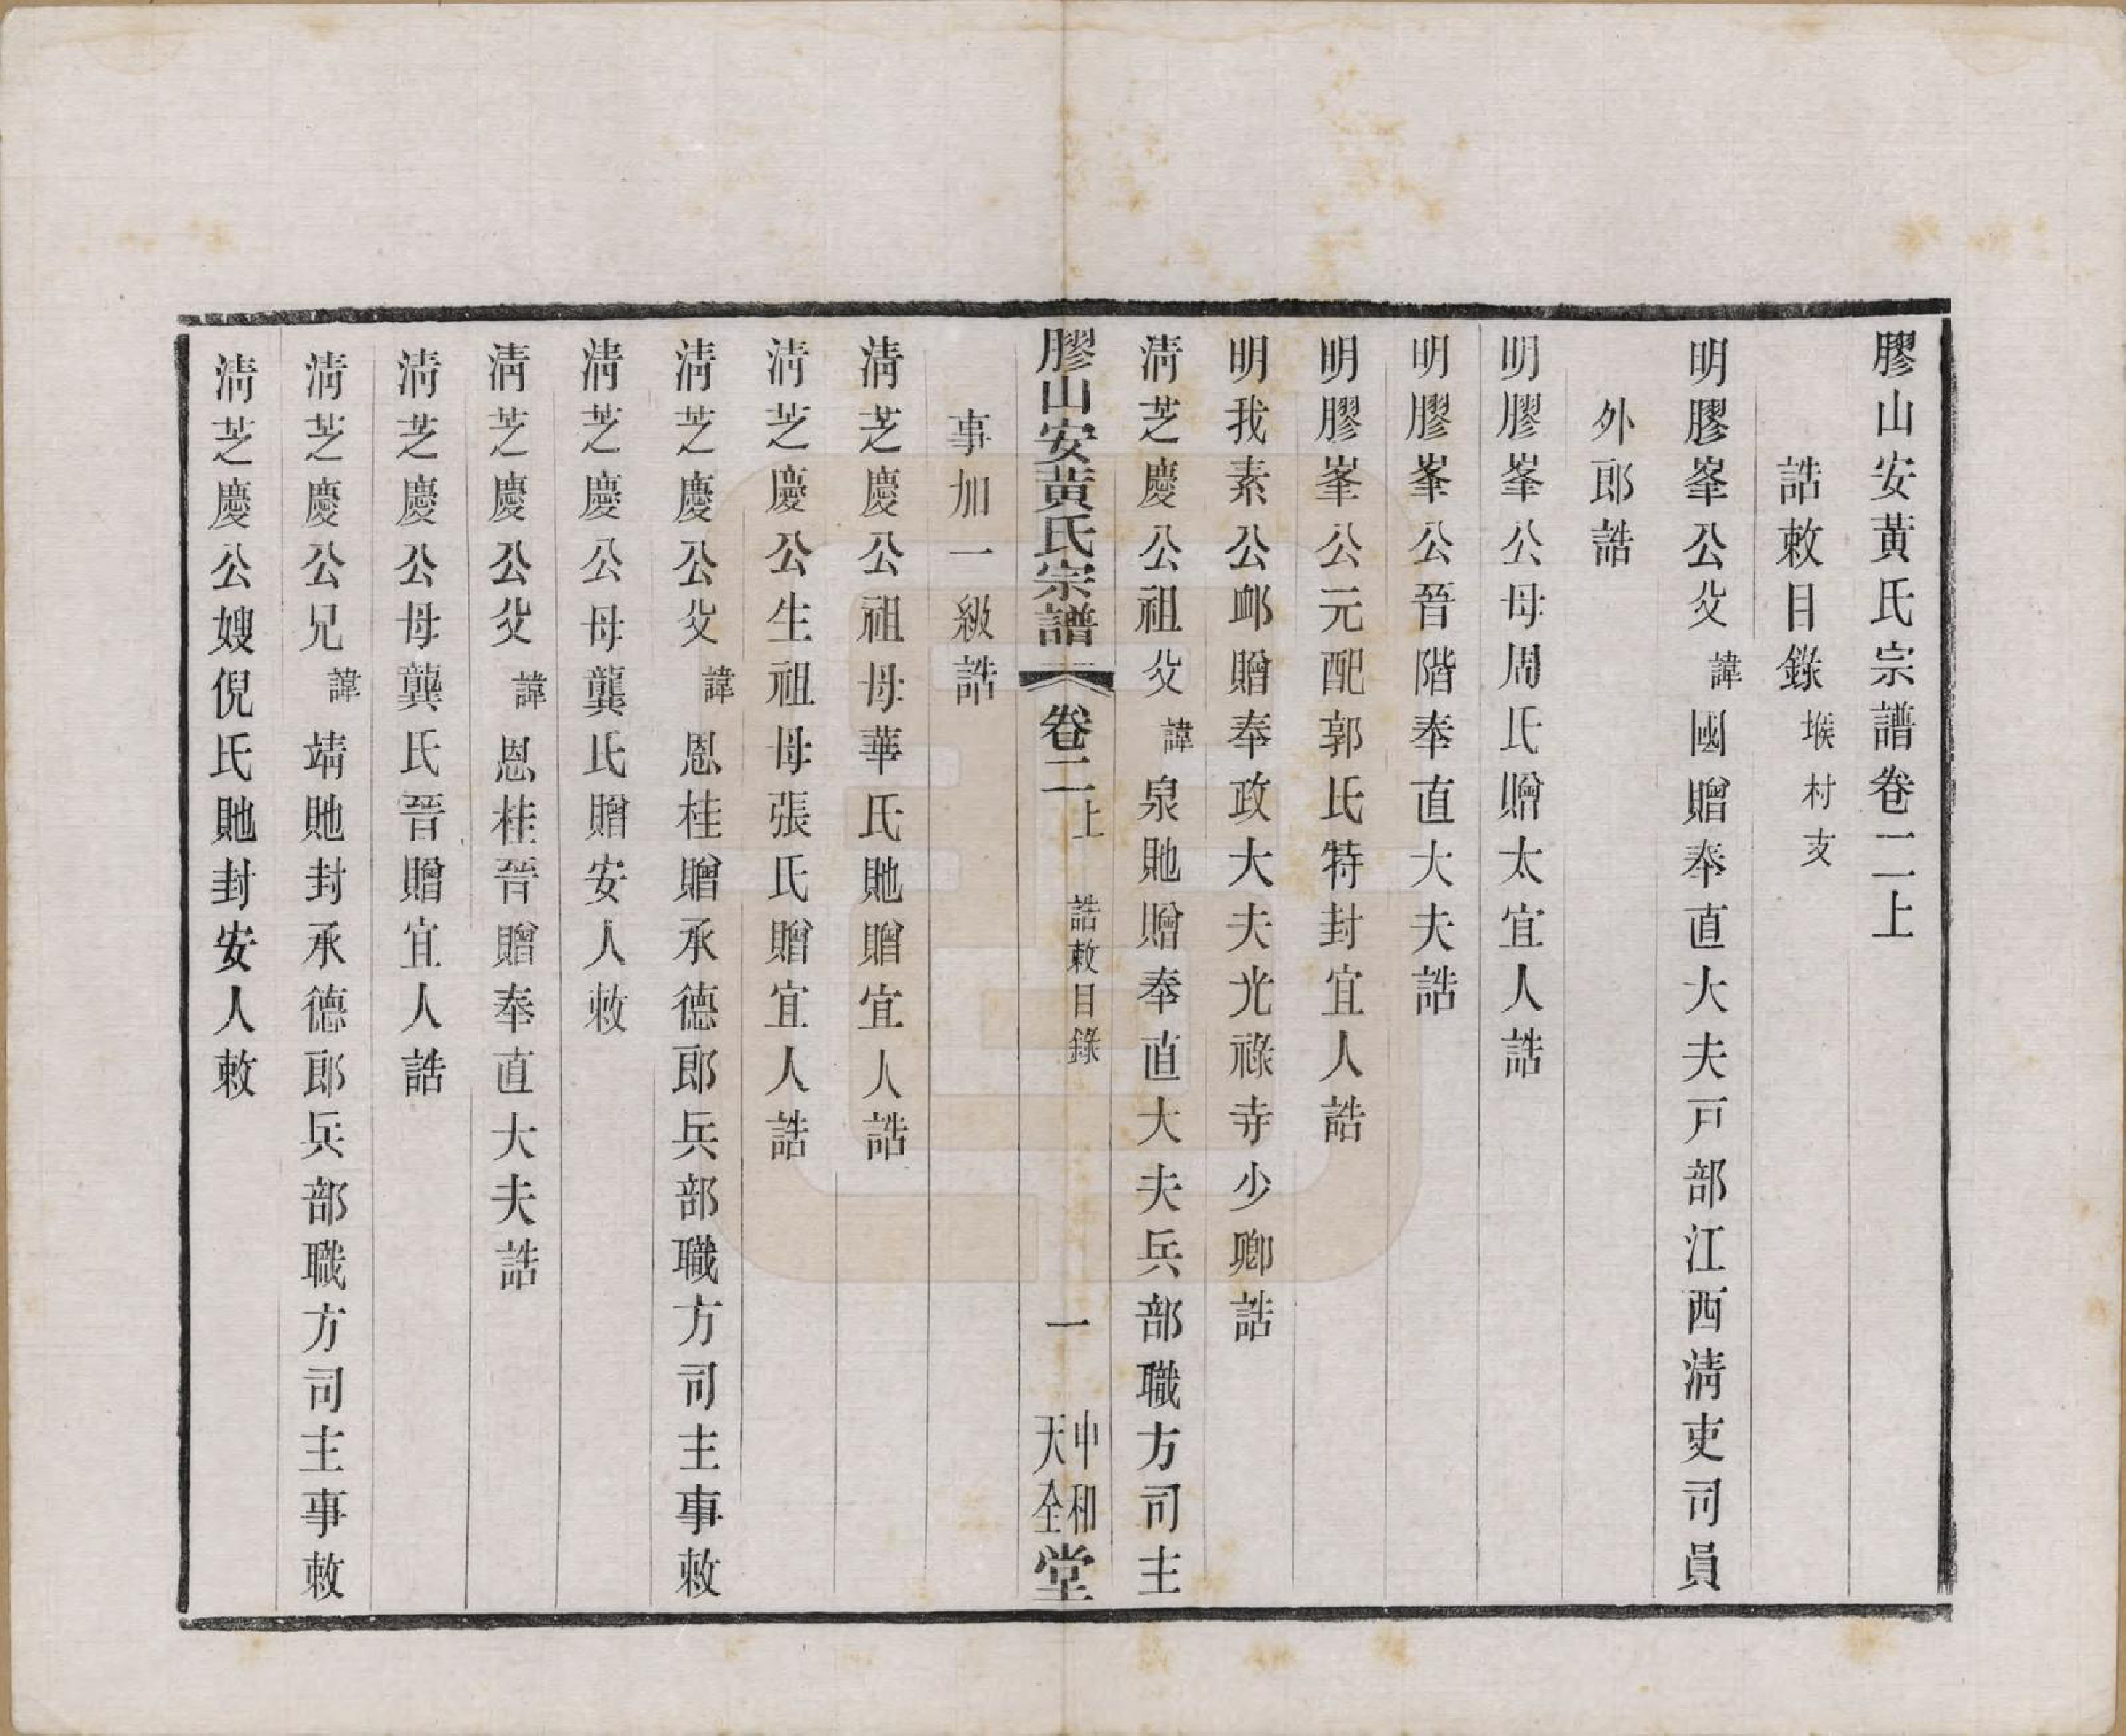 膠山安黃氏宗譜卷二上
誥敕目錄 堠村支
明膠峯公父諱國贈奉直大夫戸部江西淸吏司員
外郎誥
明膠峯公母周氏贈太宜人誥
明膠峯公晉階奉直大夫誥
明膠峯公元配郭氏特封宜人誥
明我素公卹贈奉政大夫光祿寺少卿誥
淸芝慶公祖父諱泉貤贈奉直大夫兵部職方司主
膠山安黃氏宗譜 卷二上 誥敕目錄 一 中和天全堂
事加一級誥
淸芝慶公祖母華氏貤贈宜人誥
淸芝慶公生祖母張氏贈宜人誥
淸芝慶公父諱恩桂贈承德郎兵部職方司主事敕
淸芝慶公母龔氏贈安人敕
淸芝慶公父諱恩桂晉贈奉直大夫誥
淸芝慶公母龔氏晉贈宜人誥
淸芝慶公兄諱靖貤封承德郎兵部職方司主事敕
淸芝慶公嫂倪氏貤封安人敕